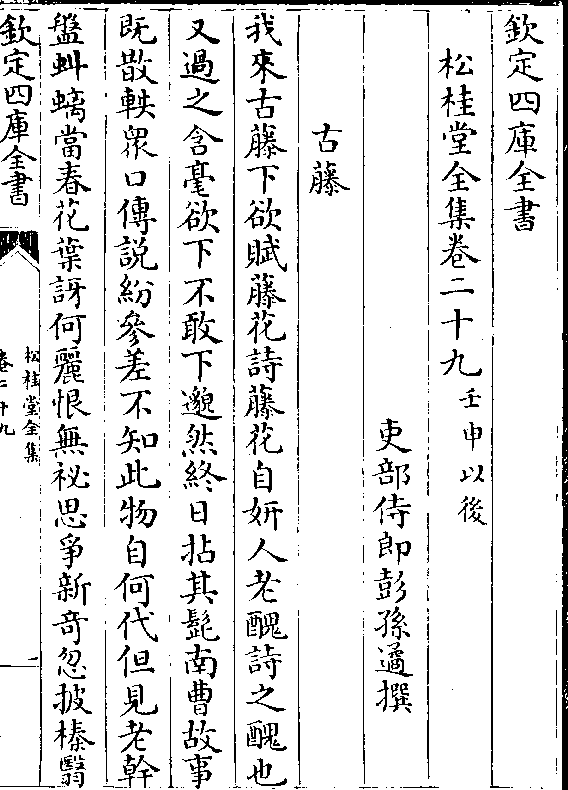 欽定四庫全書
松桂堂全集卷二十九 壬申以後
吏部侍郎彭孫遹撰
古藤
我來古藤下欲賦藤花詩藤花自妍人老醜詩之醜也
又過之含毫欲下不敢下邈然終日拈其髭南曹故事
既散軼眾口傳說紛參差不知此物自何代但見老幹
盤虯螭當春花葉訝何麗恨無祕思爭新奇忽披榛翳
欽定四庫全書
松桂堂全集
卷二十九
一